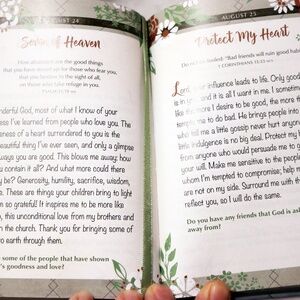 AUGUST 24
of Heaven
How abundant are the good things
that you have stored up for those who fear you,
that you bestow in the sight of all,
on those who take refuge in you.
PSALM 31:19
onderful God, most of what I know of your
ness I've learned from people who love you. The
eness of a heart surrendered to you is the
beautiful thing I've ever seen, and only a glimpse
ays you are good. This blows me away; how
you contain it all? And what more could there
y be? Generosity, humility, sacrifice, wisdom,
e. These are things your children bring to light
m so grateful! It inspires me to be more like
, this unconditional love from my brothers and
in the church. Thank you for bringing some of
to earth through them.
some of people that have shown
's goodness and love?
AUGUST 25
Protect My Heart
Do not be fooled: "Bad friends will ruin good hab
1 CORINTHIANS 15:33
Lord, your influence leads to life. Only good
is in you, and it is all I want in me. I sometim
like the more I desire to be good, the more thi
tempt me to do bad. He brings people into
who tell me a little gossip never hurt anyone
little indulgence is no big deal. Protect my
from anyone who would persuade me to go
your will. Make me sensitive to the people
whom I'm tempted to compromise; help
are not on my side. Surround me with th
reflect you, so I will do the same.
Do you have any friends that God is as
away from?